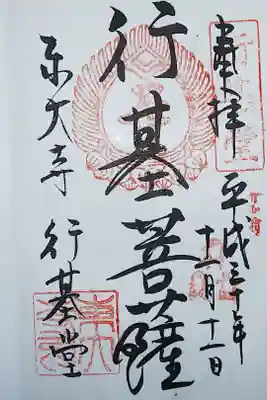 奉拝 平成三十年
十一月十一日
行基菩薩
東大寺 行基堂